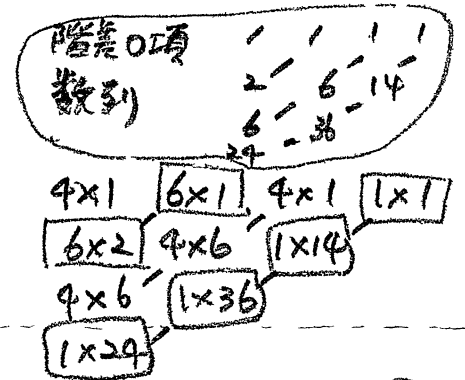 階差0項 1 1 1 1
数列 2 6 14
6 36
24
4×1 6×1 4×1 1×1
6×2 4×6 1×14
4×6 1×36
1×24